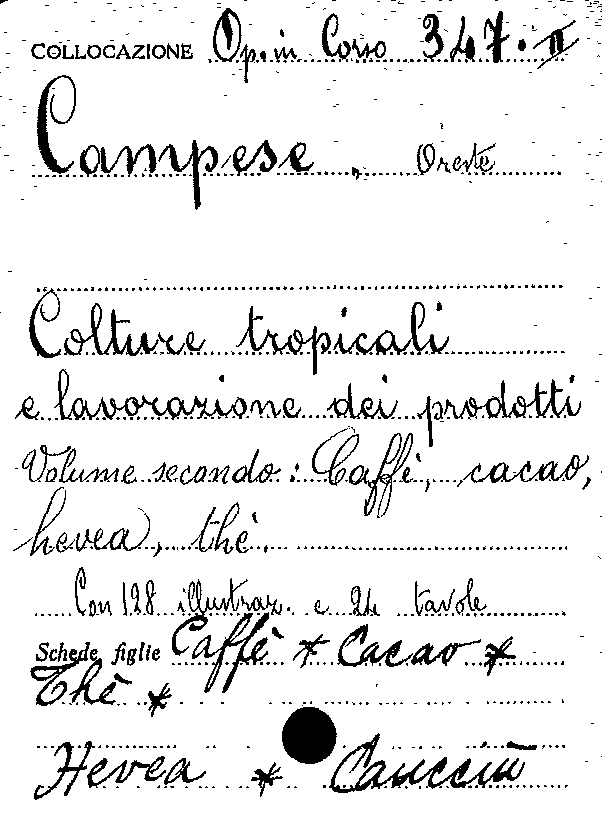 COLLOCAZIONE Op. in Corso 347. II
Campese, Oreste
Colture tropicali
e lavorazione dei prodotti
Volume secondo: Caffè, cacao,
hevea, thè.
Con 128 illustraz. e 24 tavole
Schede figlie Caffè * Cacao *
Thè *
Hevea * Caucciù